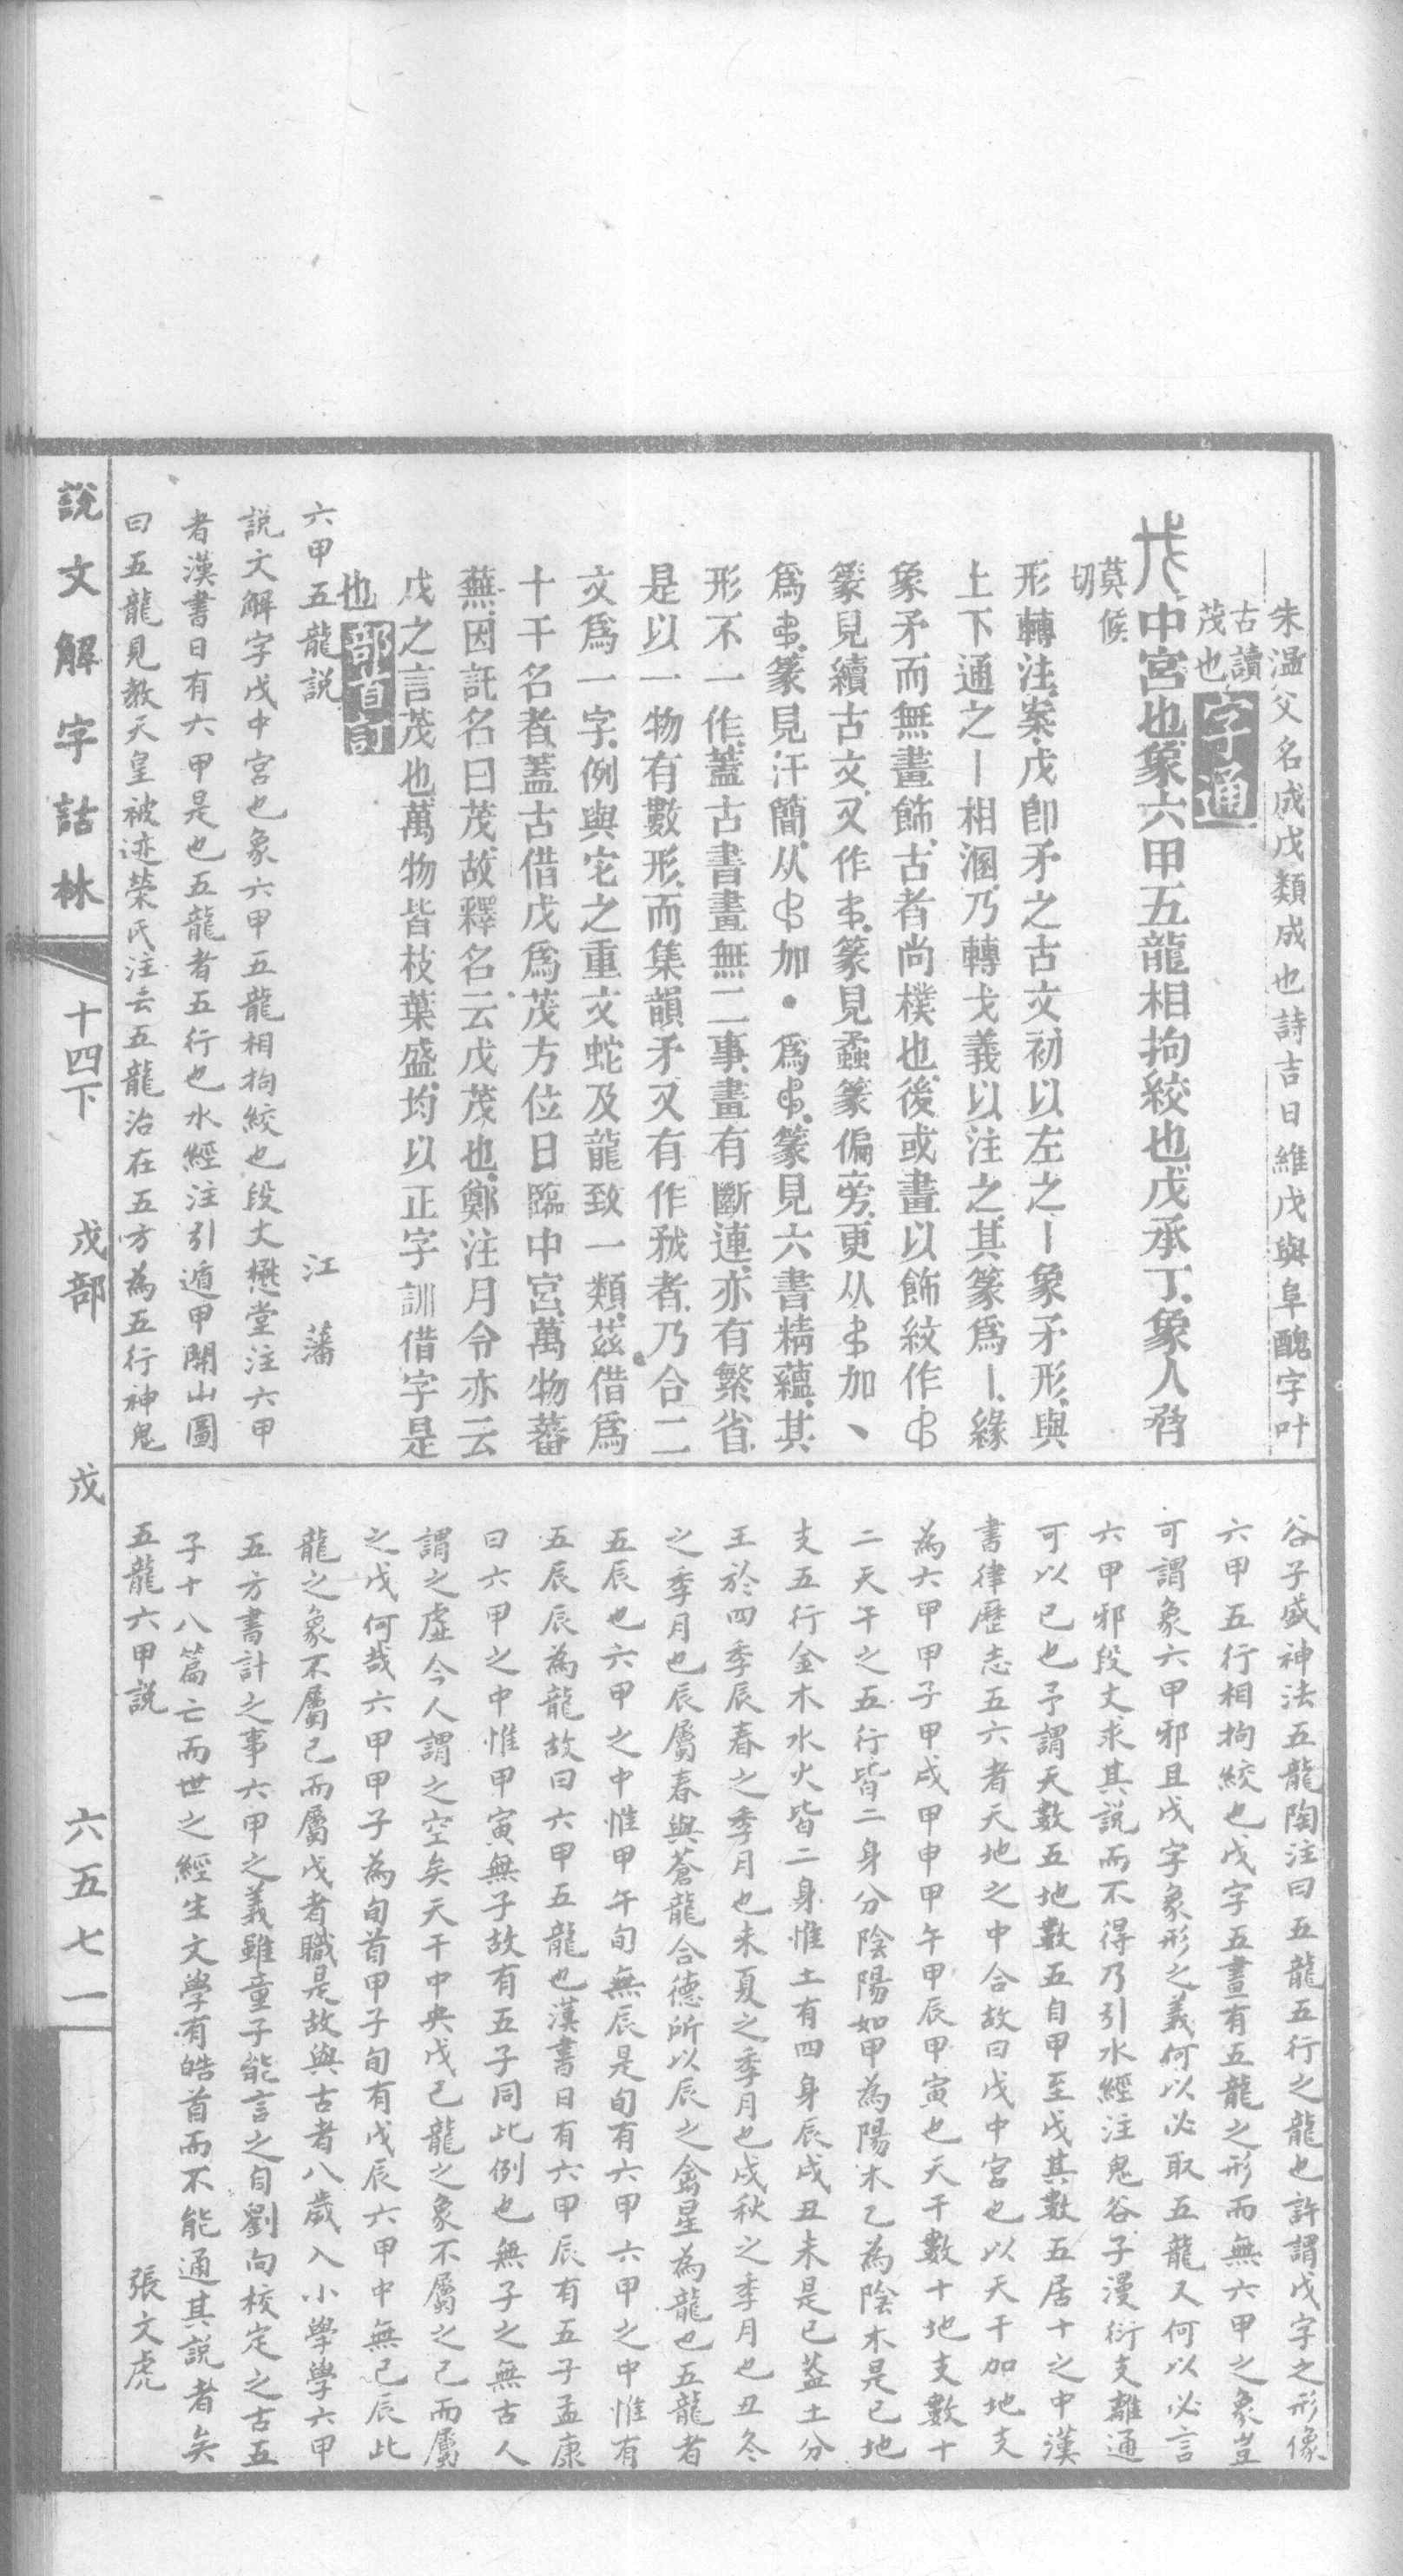 朱溫父名成戊類成也詩吉日維戊與阜醜字叶
古讀
茂也
字通
戊中宮也象六甲五龍相拘絞也戊承丁象人脅
莫候
切
形轉注案戊卽矛之古文初以左之丨象矛形與
上下通之丨相溷乃轉戈義以注之其篆爲丨緣
象矛而無畫飾古者尚樸也後或畫以飾紋作
篆見續古文又作篆見蝥篆偏旁更从加丶
爲篆見汗簡从加•爲篆見六書精蘊其
形不一作蓋古書畫無二事畫有斷連亦有繁省
是以一物有數形而集韻矛又有作𢦧者乃合二
文爲一字例與它之重文蛇及龍致一類茲借爲
十干名者蓋古借戊爲茂方位日臨中宮萬物蕃
蕪因託名曰茂故釋名云戊茂也鄭注月令亦云
戊之言茂也萬物皆枝葉盛均以正字訓借字是
也部首訂
六甲五龍説　江藩
說文解字戊中宮也象六甲五龍相拘絞也段丈懋堂注六甲
者漢書日有六甲是也五龍者五行也水經注引遁甲開山圖
曰五龍見教天皇被迹榮氏注云五龍治在五方為五行神鬼
谷子盛神法五龍陶注曰五龍五行之龍也許謂戊字之形像
六甲五行相拘絞也戊字五畫有五龍之形而無六甲之象豈
可謂象六甲邪且戊字象形之義何以必取五龍又何以必言
六甲邪段丈求其說而不得乃引水經注鬼谷子漫衍支離通
可以已也予謂天數五地數五自甲至戊其數五居十之中漢
書律歷志五六者天地之中合故曰戊中宮也以天干加地支
為六甲甲子甲戌甲申甲午甲辰甲寅也天干數十地支數十
二天干之五行皆二身分陰陽如甲為陽木乙為陰木是已地
支五行金木水火皆二身惟土有四身辰戌丑未是已蓋土分
王於四季辰春之季月也未夏之季月也戌秋之季月也丑冬
之季月也辰屬春與蒼龍合德所以辰之禽星為龍也五龍者
五辰也六甲之中惟甲午旬無辰是旬有六甲六甲之中惟有
五辰辰為龍故曰六甲五龍也漢書日有六甲辰有五子孟康
曰六甲之中惟甲寅無子故有五子同此例也無子之無古人
謂之虛今人謂之空矣天干中央戊己龍之象不屬之己而屬
之戊何哉六甲甲子為旬首甲子旬有戊辰六甲中無己辰此
龍之象不屬己而屬戊者職是故與古者八歲入小學學六甲
五方書計之事六甲之義雖童子能言之自劉向校定之古五
子十八篇亡而世之經生文學有皓首而不能通其説者矣
五龍六甲説　張文虎
說文解字詁林　十四下　戊部　戊　六五七一